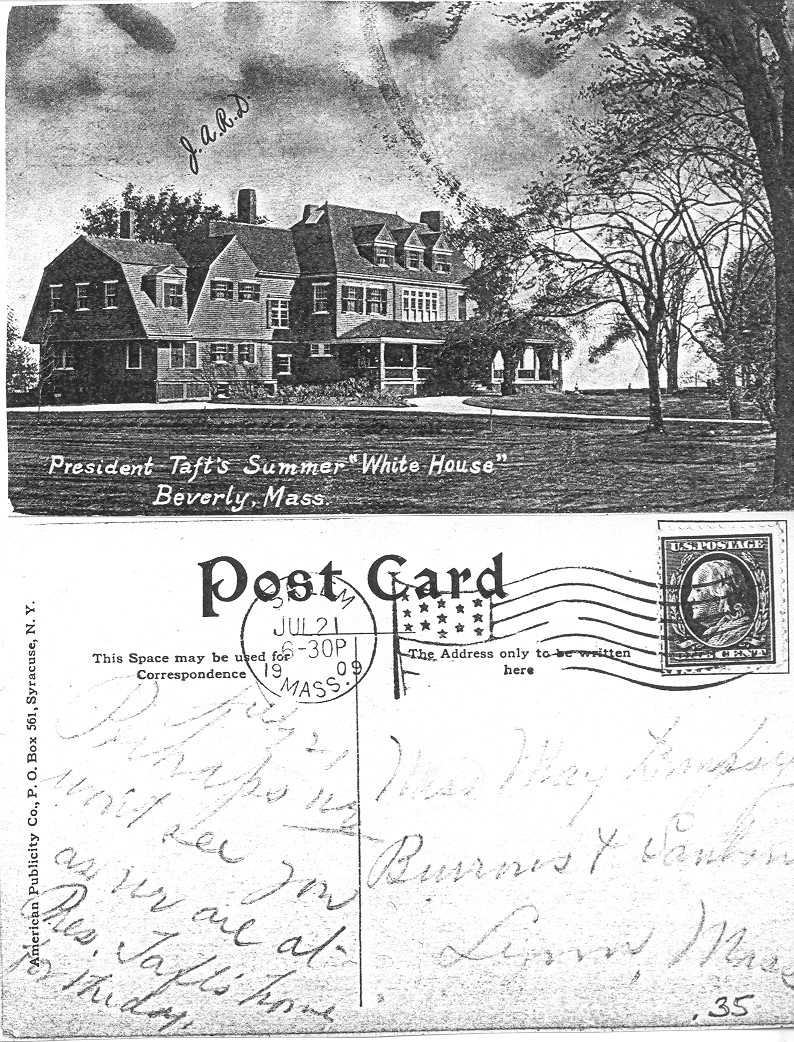 J.A.R.D.
President Taft's Summer "White House"
Beverly, Mass.
Post Card
U.S. POSTAGE
JUL 21
6-30P
19 09
MASS.
This Space may be used for
Correspondence
The Address only to be written
here
American Publicity Co., P. O. Box 561, Syracuse, N. Y.
July 21,
Perhaps
wont see you
as we are at
Pres. Taft's home
for the day.
Miss May
Burrows &
Lynn, Mass
.35